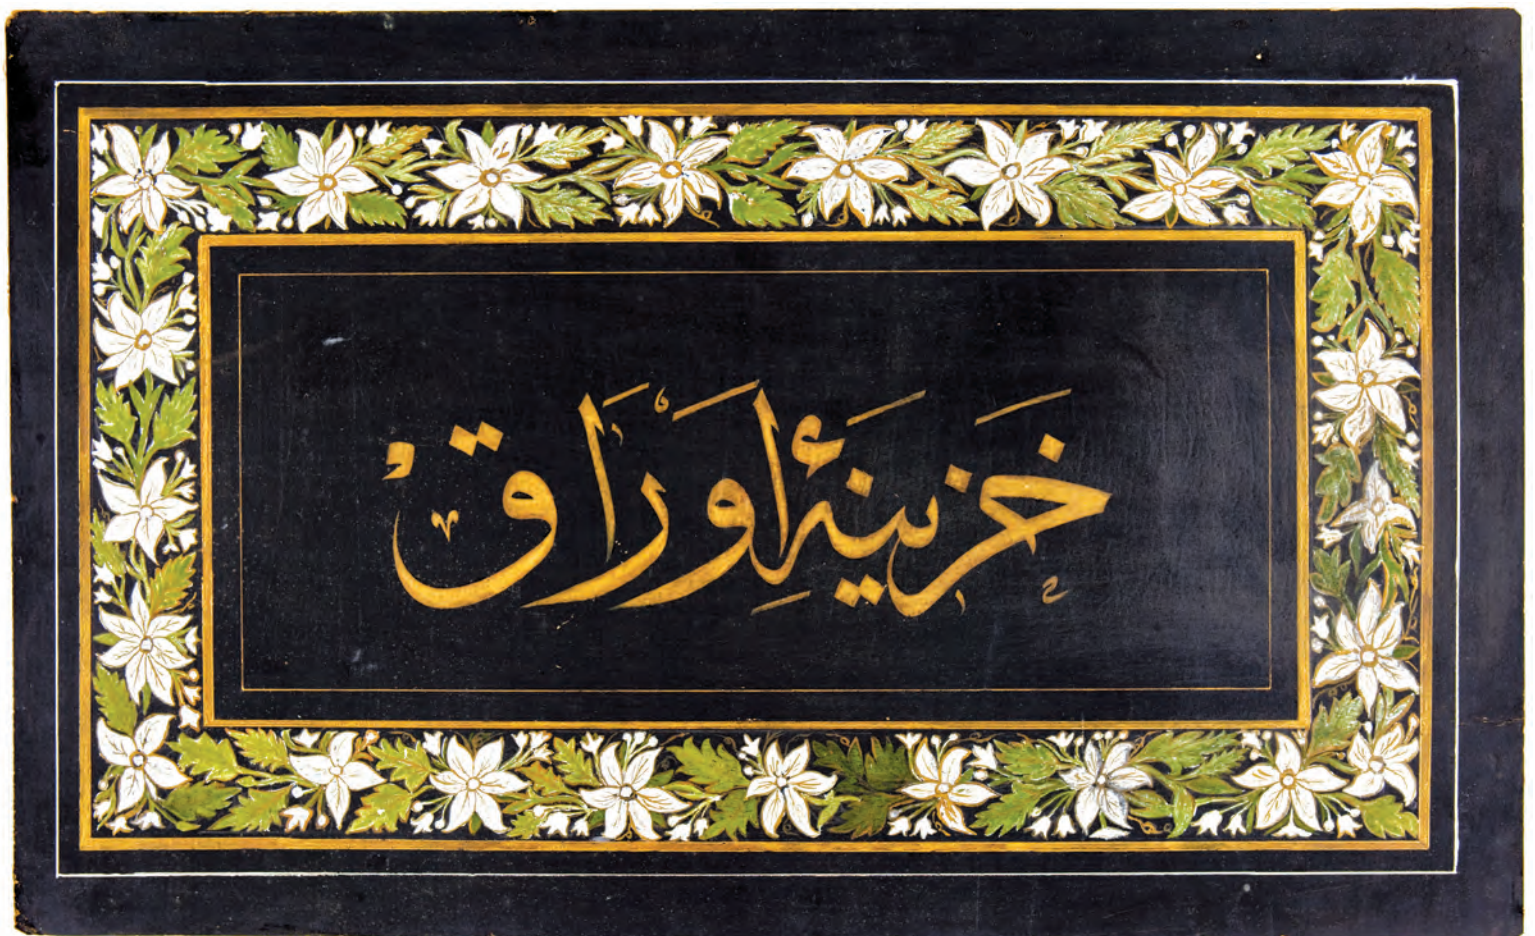 خزينۀ اوراق